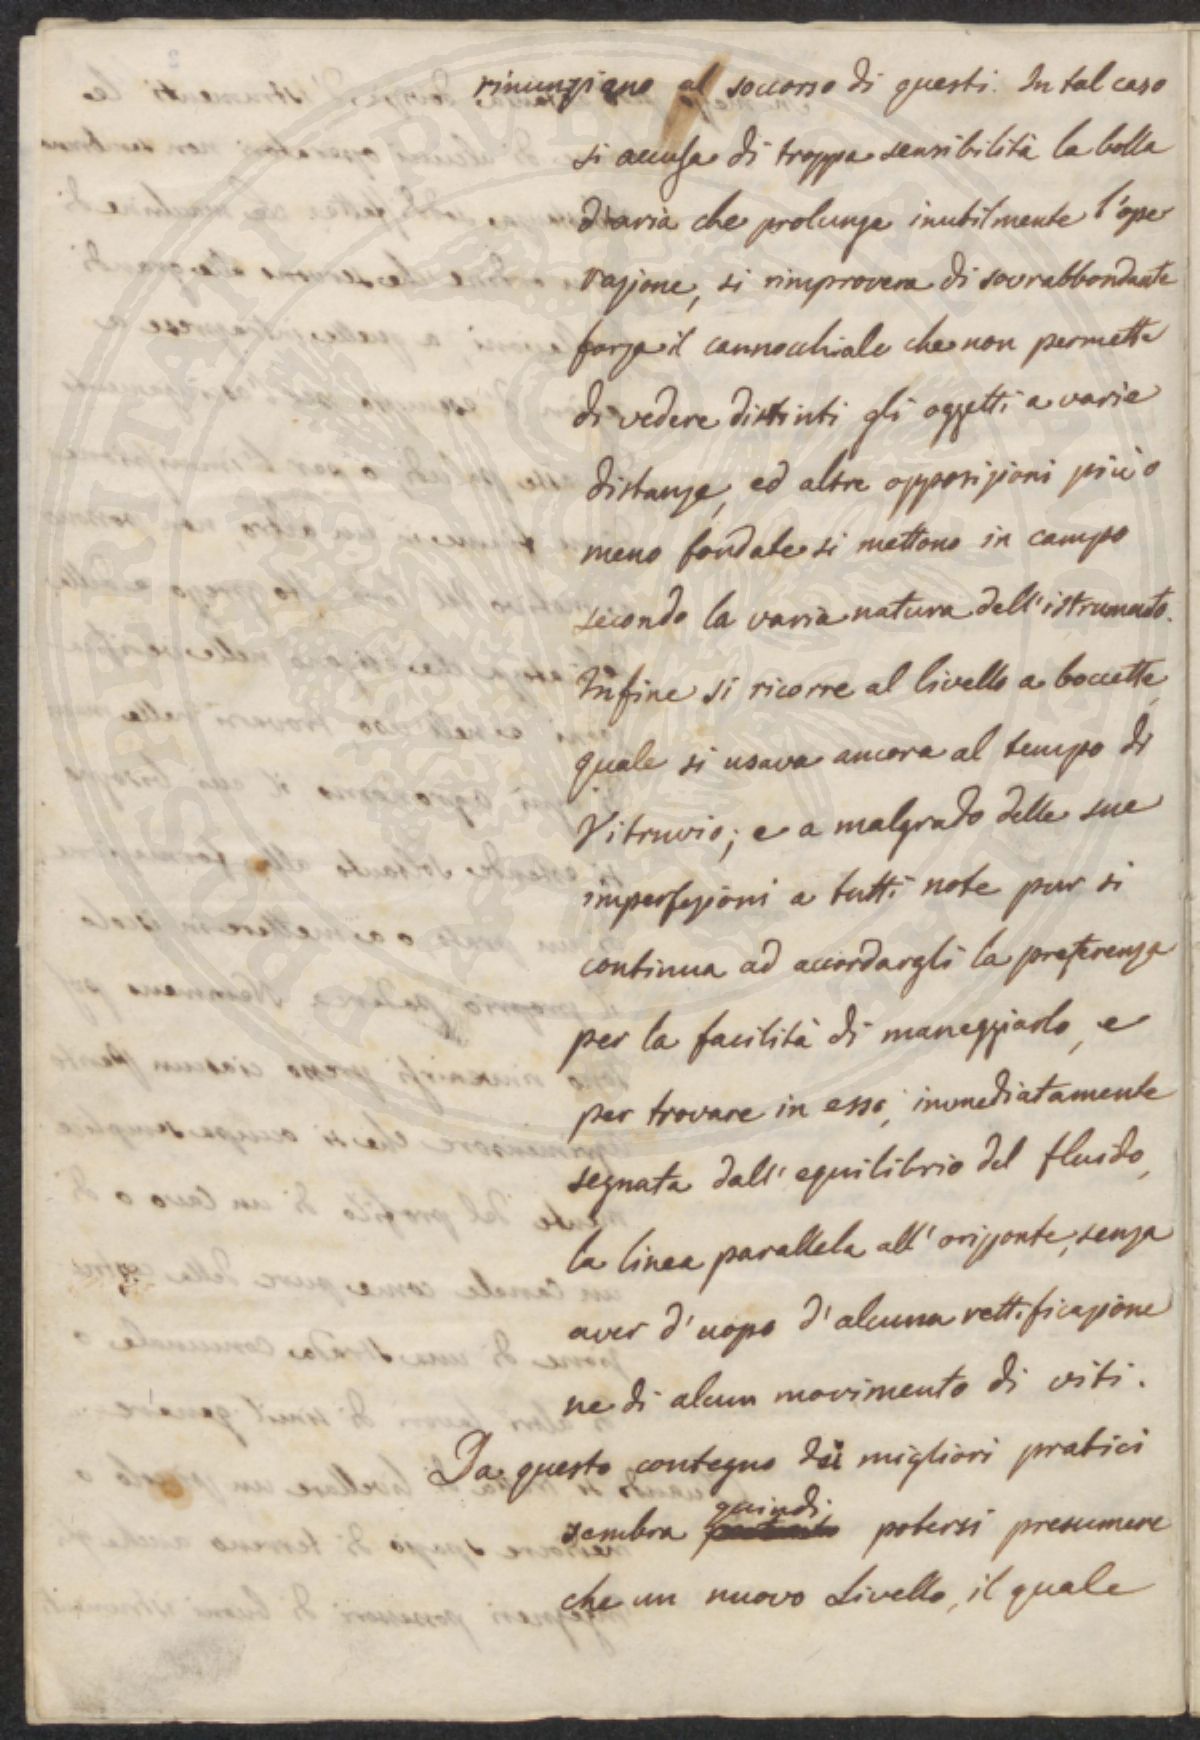 rinunziano al soccorso di questi. In tal caso
si accusa di troppa sensibilità la bolla
d'aria che prolunga inutilmente l'ope
razione, si rimprovera di sovrabbondante
forza il cannocchiale che non permette
di vedere distinti gli oggetti a varie
distanze, ed altre opposizioni più o
meno fondate si mettono in campo
secondo la varia natura dell'istrumento.
Infine si ricorre al livello a boccette,
quale si usava ancora al tempo di
Vitruvio; e a malgrado delle sue
imperfezioni a tutti note pur si
continua ad accordargli la preferenza
per la facilità di maneggiarlo, e
per trovare in esso, immediatamente
segnata dall'equilibrio del fluido,
la linea parallela all'orizzonte, senza
aver d'uopo d'alcuna rettificazione
ne di alcun movimento di viti.
Da questo contegno dei migliori pratici
sembra quindi potersi presumere
che un nuovo Livello, il quale